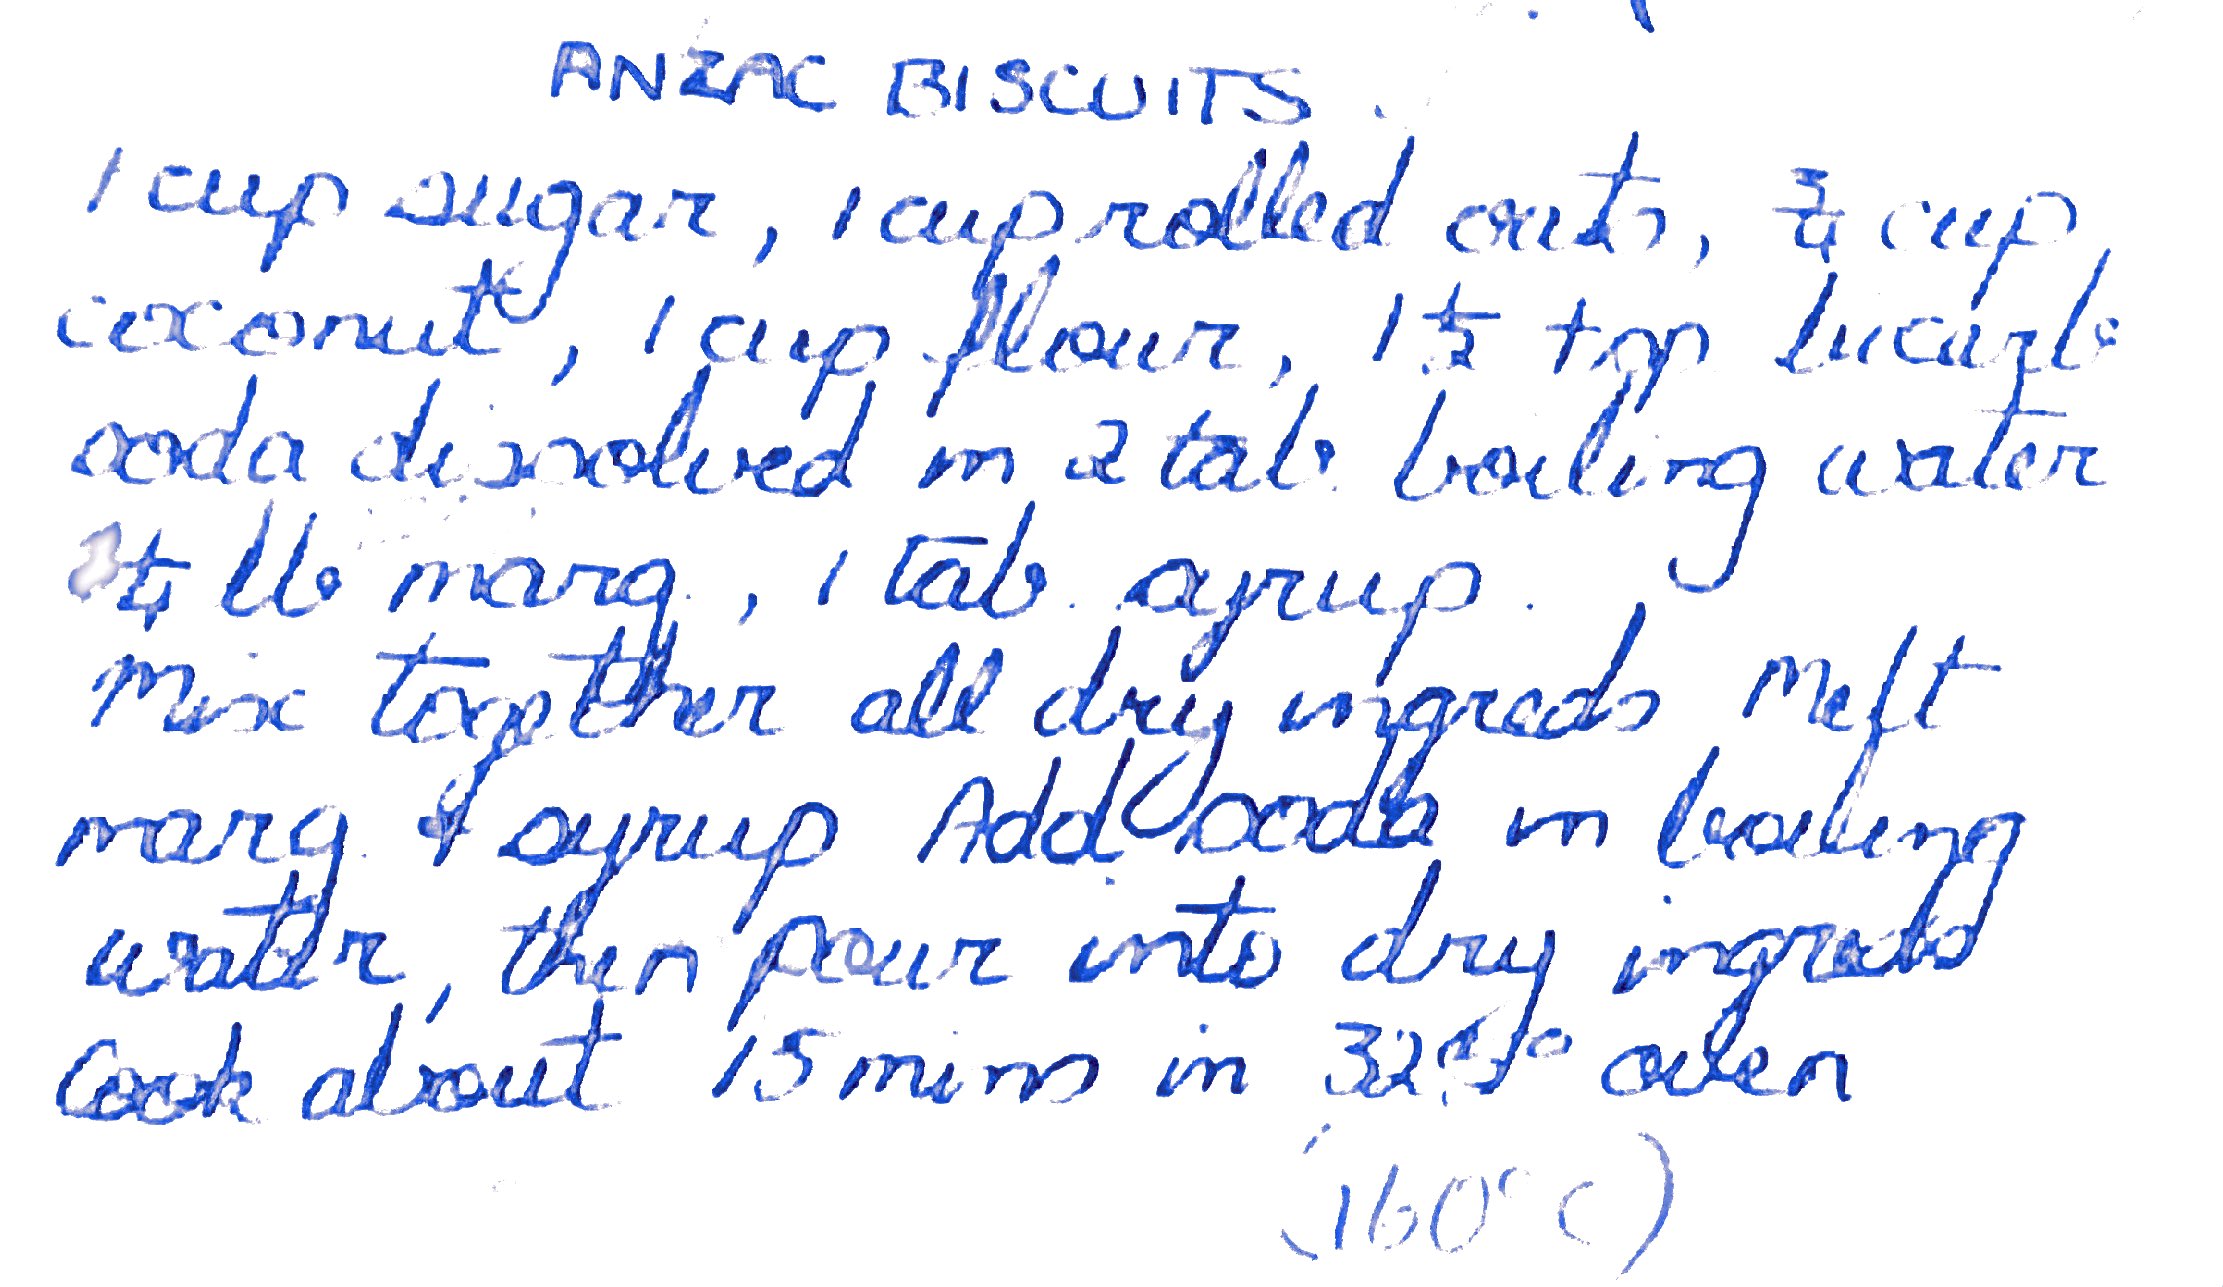 ANZAC BISCUITS.
1 cup sugar, 1 cup rolled oats, 3/4 cup
coconut, 1 cup flour, 1 1/2 tsp bicarb.
soda dissolved in 2 tab. boiling water
1/4 lb. marg., 1 tab. syrup.
Mix together all dry ingreds Melt
marg. & syrup Add soda in boiling
water, then pour into dry ingreds
Cook about 15 mins in 325° oven
(160°C)